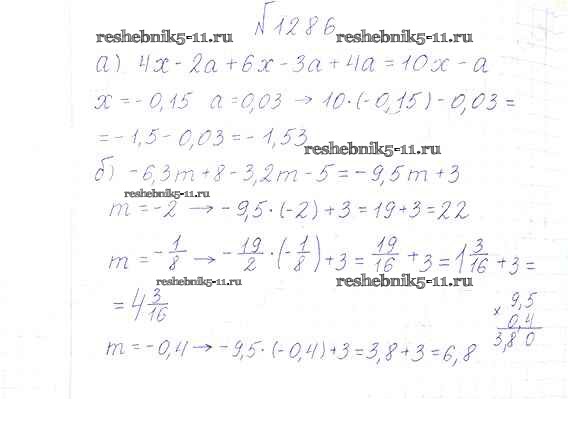 №1286
reshebnik5-11.ru reshebnik5-11.ru
а) 4x - 2a + 6x - 3a + 4a = 10x - a
x = -0,15 a = 0,03 → 10·(-0,15) - 0,03 =
= -1,5 - 0,03 = -1,53
reshebnik5-11.ru
б) -6,3m + 8 - 3,2m - 5 = -9,5m + 3
reshebnik5-11.ru
m = -2 → -9,5·(-2) + 3 = 19 + 3 = 22
m = -1/8 → -19/2·(-1/8) + 3 = 19/16 + 3 = 1 3/16 + 3 =
reshebnik5-11.ru reshebnik5-11.ru
= 4 3/16
m = -0,4 → -9,5·(-0,4) + 3 = 3,8 + 3 = 6,8
9,5
× 0,4
3,80